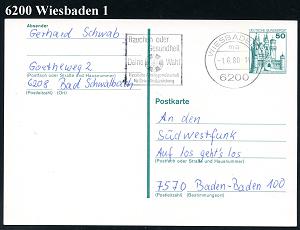 6200 Wiesbaden 1
Absender
Gerhard Schwab
Goetheweg 2
(Postfach oder Straße und Hausnummer)
6208 Bad Schwalbach
(Postleitzahl) (Ort)
Rauchen oder
Gesundheit
Deine Wahl
WIESBADEN
ma
-1.6.80
6200
DEUTSCHE BUNDESPOST
50
Postkarte
An den
Südwestfunk
Auf los geht's los
(Postfach oder Straße und Hausnummer)
7570 Baden-Baden 100
(Postleitzahl) (Bestimmungsort)